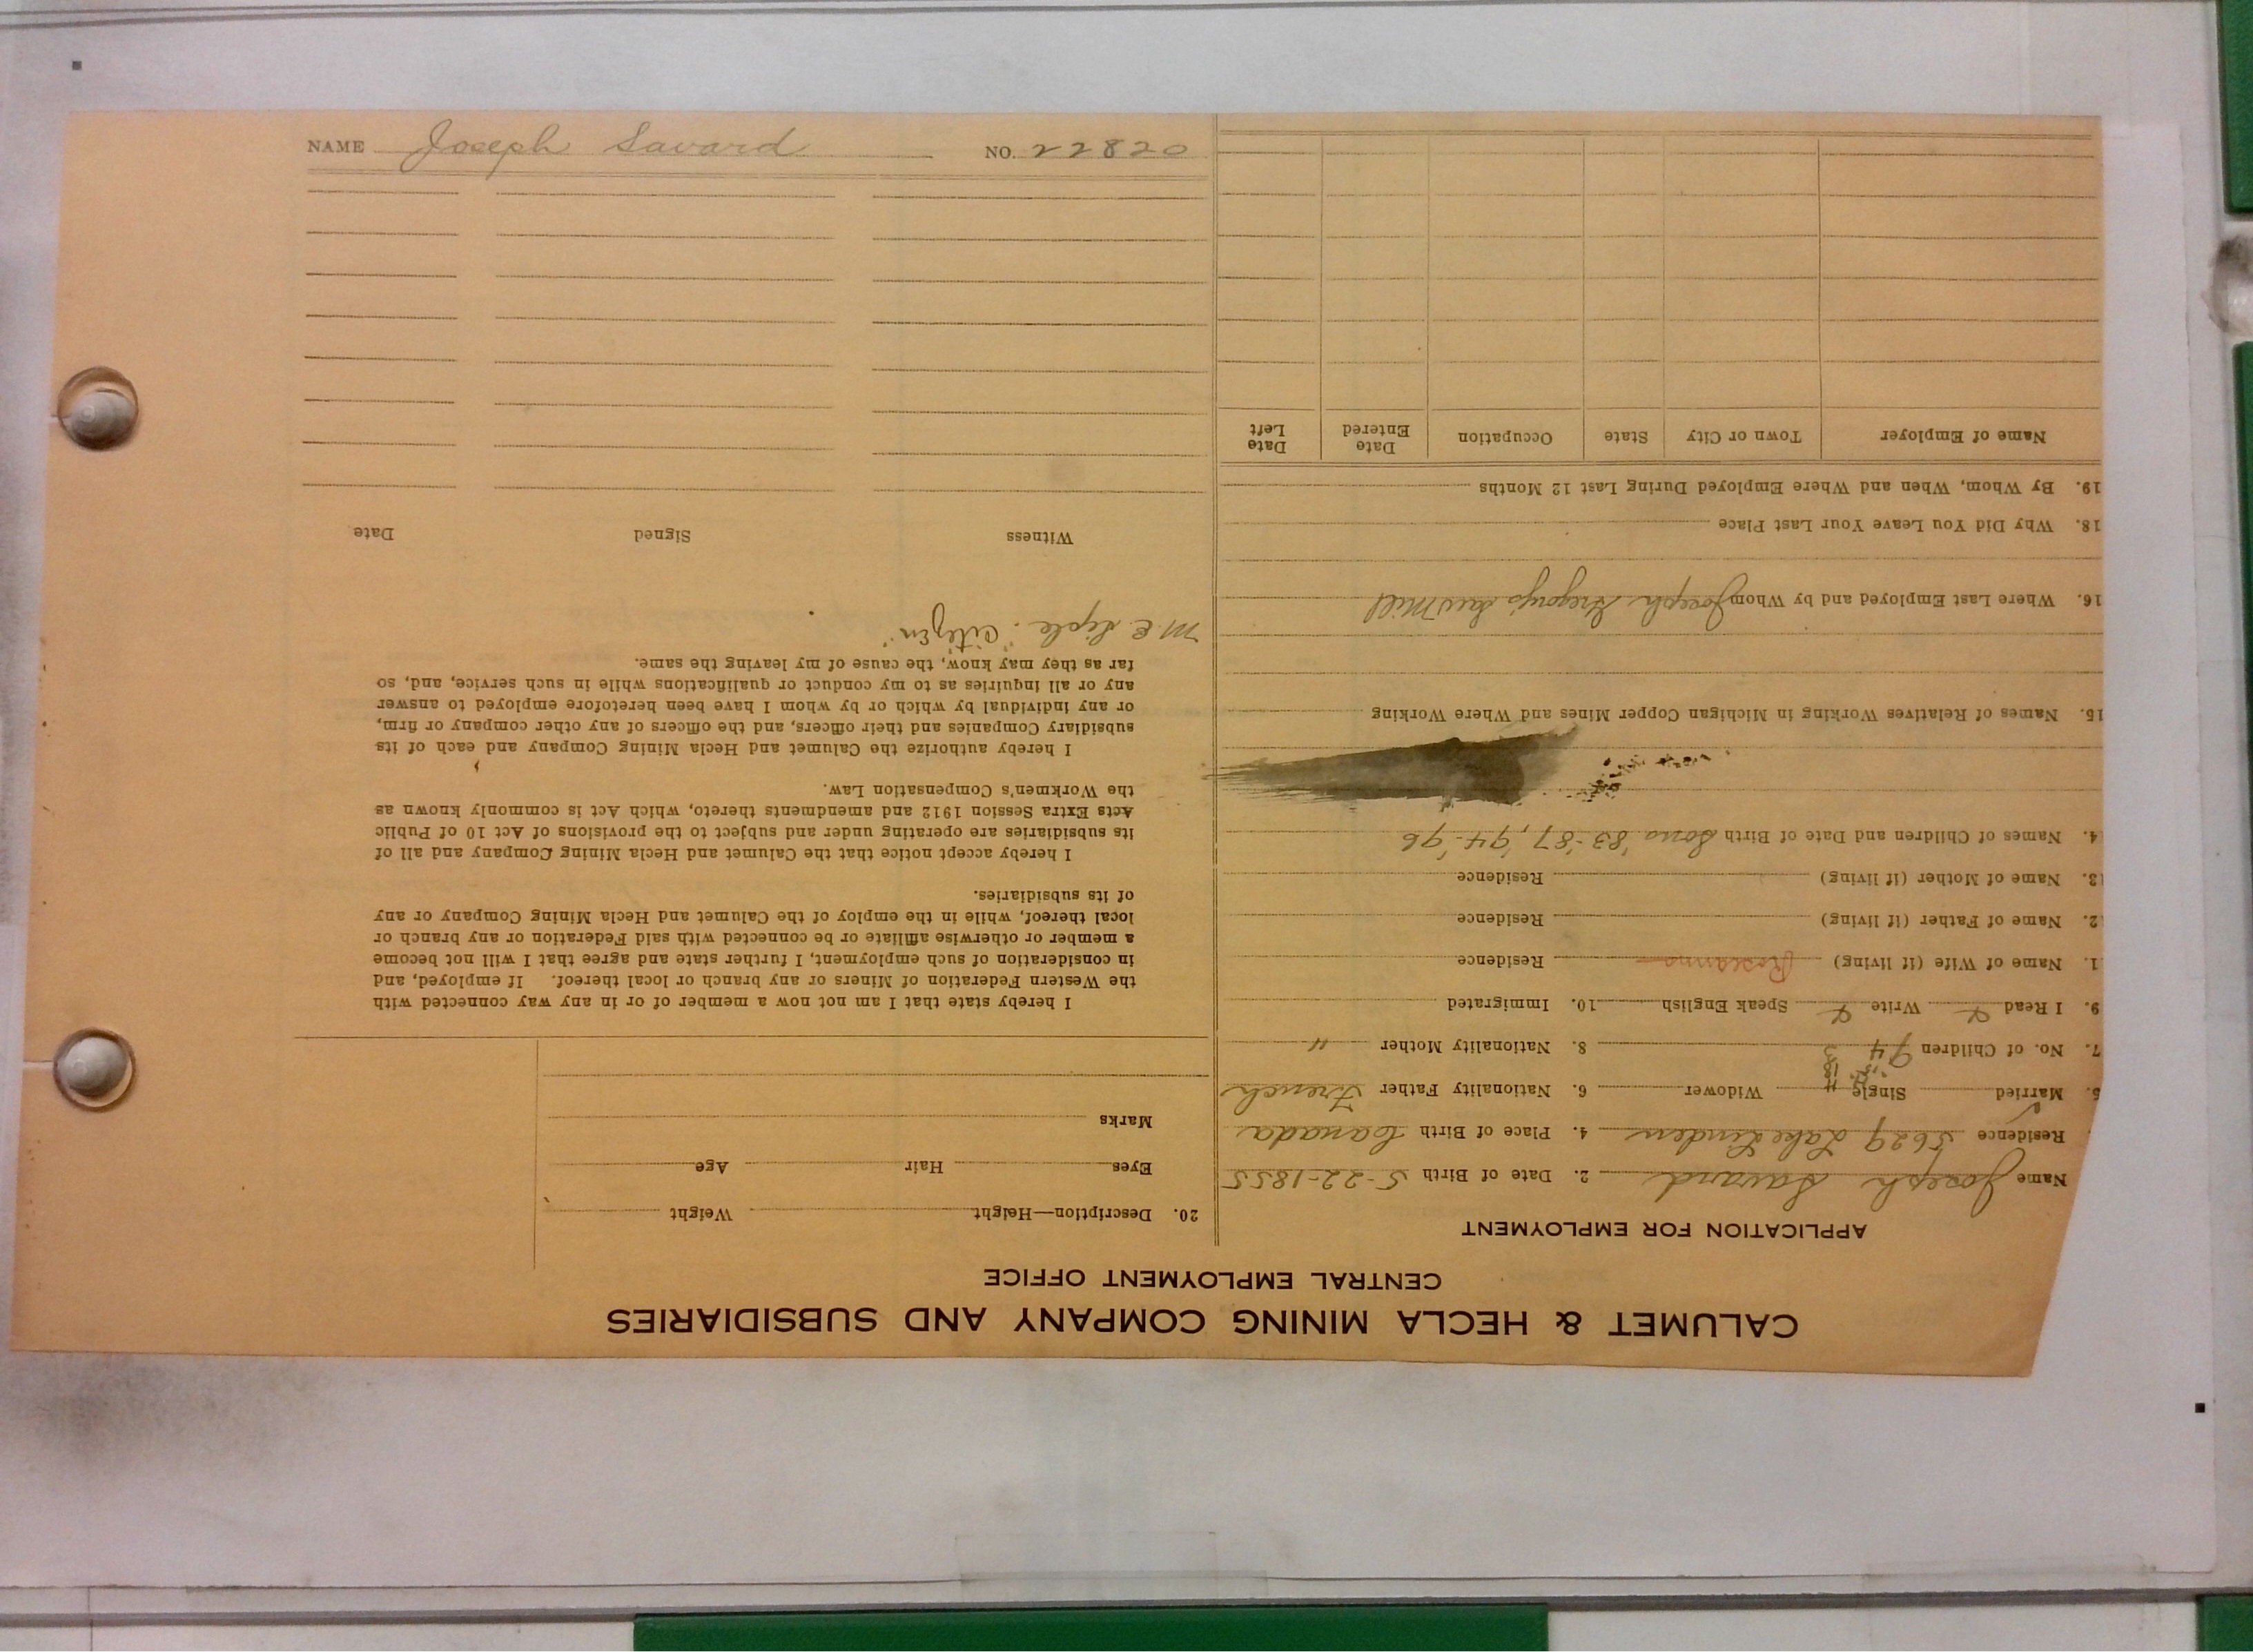 CALUMET & HECLA MINING COMPANY AND SUBSIDIARIES
CENTRAL EMPLOYMENT OFFICE
APPLICATION FOR EMPLOYMENT
Name Joseph Savard 2. Date of Birth 5-22-1855
Residence 5629 Lake Linden 4. Place of Birth Canada
5. Married Single Widower 6. Nationality Father French
7. No. of Children 8. Nationality Mother "
9. I Read Write Speak English 10. Immigrated
1. Name of Wife (if living) Roseanna Residence
2. Name of Father (if living) Residence
13. Name of Mother (if living) Residence
4. Names of Children and Date of Birth Sons '83-'87, '94-'96
15. Names of Relatives Working in Michigan Copper Mines and Where Working
16. Where Last Employed and by Whom Joseph Gregory's Saw Mill
18. Why Did You Leave Your Last Place
19. By Whom, When and Where Employed During Last 12 Months
Name of Employer Town or City State Occupation Date Entered Date Left
20. Description—Height Weight
Eyes Hair Age
Marks
I hereby state that I am not now a member of or in any way connected with
the Western Federation of Miners or any branch or local thereof. If employed, and
in consideration of such employment, I further state and agree that I will not become
a member or otherwise affiliate or be connected with said Federation or any branch or
local thereof, while in the employ of the Calumet and Hecla Mining Company or any
of its subsidiaries.
I hereby accept notice that the Calumet and Hecla Mining Company and all of
its subsidiaries are operating under and subject to the provisions of Act 10 of Public
Acts Extra Session 1912 and amendments thereto, which Act is commonly known as
the Workmen's Compensation Law.
I hereby authorize the Calumet and Hecla Mining Company and each of its
subsidiary Companies and their officers, and the officers of any other company or firm,
or any individual by which or by whom I have been heretofore employed to answer
any or all inquiries as to my conduct or qualifications while in such service, and, so
far as they may know, the cause of my leaving the same.
"Citizen"
Witness Signed Date
NAME Joseph Savard NO. 22820